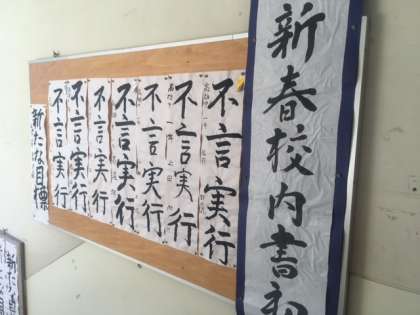 新春校内書初
不言実行
不言実行
不言実行
不言実行
不言実行
不言実行
不言実行
新たな目標